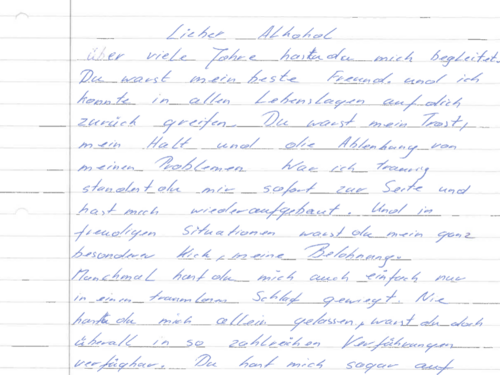 Lieber Alkohol
über viele Jahre hast du mich begleitet.
Du warst mein beste Freund und ich
konnte in allen Lebenslagen auf dich
zurück greifen. Du warst mein Trost,
mein Halt und die Ablenkung von
meinen Problemen War ich traurig
standest du mir sofort zur Seite und
hast mich wiederaufgebaut. Und in
freudigen Situationen warst du mein ganz
besonderer Kick, meine Belohnung.
Manchmal hast du mich auch einfach nur
in einen traumlosen Schlaf gewiegt. Nie
hast du mich allein gelassen, warst du doch
überall in so zahlreichen Verführungen
verfügbar. Du hast mich sogar auf